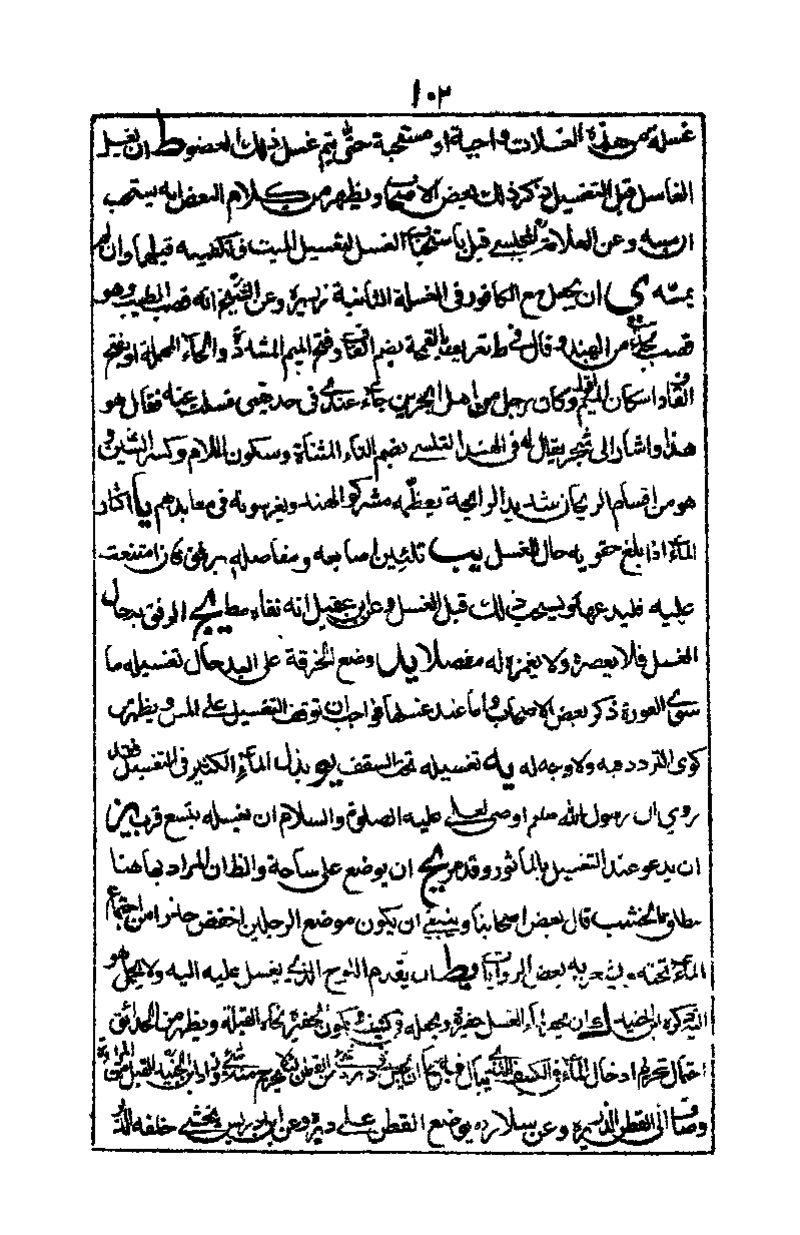 ١٠٢
غسلة من هذه الغسلات واجبة او مستحبة حتى يتم غسل ذلك العضو ط ان يغسل
الغاسل قبل التغسيل ذكر ذلك بعض الاصحاب ويظهر من كلام البعض انه يستحب
وعن العلامة المجلسي قبل باستحباب الغسل لتغسيل الميت وتكفينه قبلهما وان لم
يمسه ى ان يجعل مع الكافور في الغسلة الثانية وعن انه قصب الطيب وهو
قصب من الهند وقال في تعريف القمحة بضم القاف وفتح الميم المشددة والحاء المهملة او بفتح
القاف واسكان الميم وكان رجل من اهل البحرين جاء عندي في حديقتي فسئلت عنه فقال هو
هذا واشار الى شجر يقال له في الهند التلسي بضم التاء المثناة وسكون اللام وكسر السين و
هو من اقسام الريحان شديد الرائحة يعظمه مشركو الهند ويغرسونه في معابدهم يا اكثار
الماء اذا بلغ حقويه حال الغسل يب تليين اصابعه ومفاصله برفق فان امتنعت
عليه فليدعها ويستحب ذلك قبل الغسل وعن ابن عقيل انه نفاه مطلقا يج الرفق به حال
الغسل فلا يعصره ولا يغمز له مفصلا يد وضع الخرقة على اليد حال تغسيله ما
سوى العورة ذكر بعض الاصحاب واما عند غسلها فواجب ان توقف التغسيل على المس ويظهر من
كرى التردد فيه ولا وجه له يه تغسيله تحت السقف يو بذل الماء الكثير في التغسيل فقد
روي ان رسول الله صلعم اوصى لعلي عليه الصلوة والسلام ان يغسله بتسع قرب يز
ان يدعو عند التغسيل بالمأثور وقد مر يح ان يوضع على ساجة والظ ان المراد بها هنا
مطلق الخشب قال بعض اصحابنا وينبغي ان يكون موضع الرجلين اخفض حذرا من اجتماع
الماء تحته ويشعر به بعض الروايات يط ان يقدم اللوح الذي يغسل عليه اليه ولا يحمل هو
اليه ذكره ابن الجنيد ك ان يهيأ لماء الغسل حفيرة ويجعله في كنيف وتكون الحفيرة تجاه القبلة ويظهر من الحدائق
احتمال تحريم ادخال الماء في الكنيف الذي يبال فيه كا ان يجعل في دبره من القطن لئلا يخرج منه شيء وزاد ابن الجنيد القبل من المراة
الى القطن الذريرة وعن سلار ره يوضع القطن على دبره وعن ابن ادريس يحشى خلفه